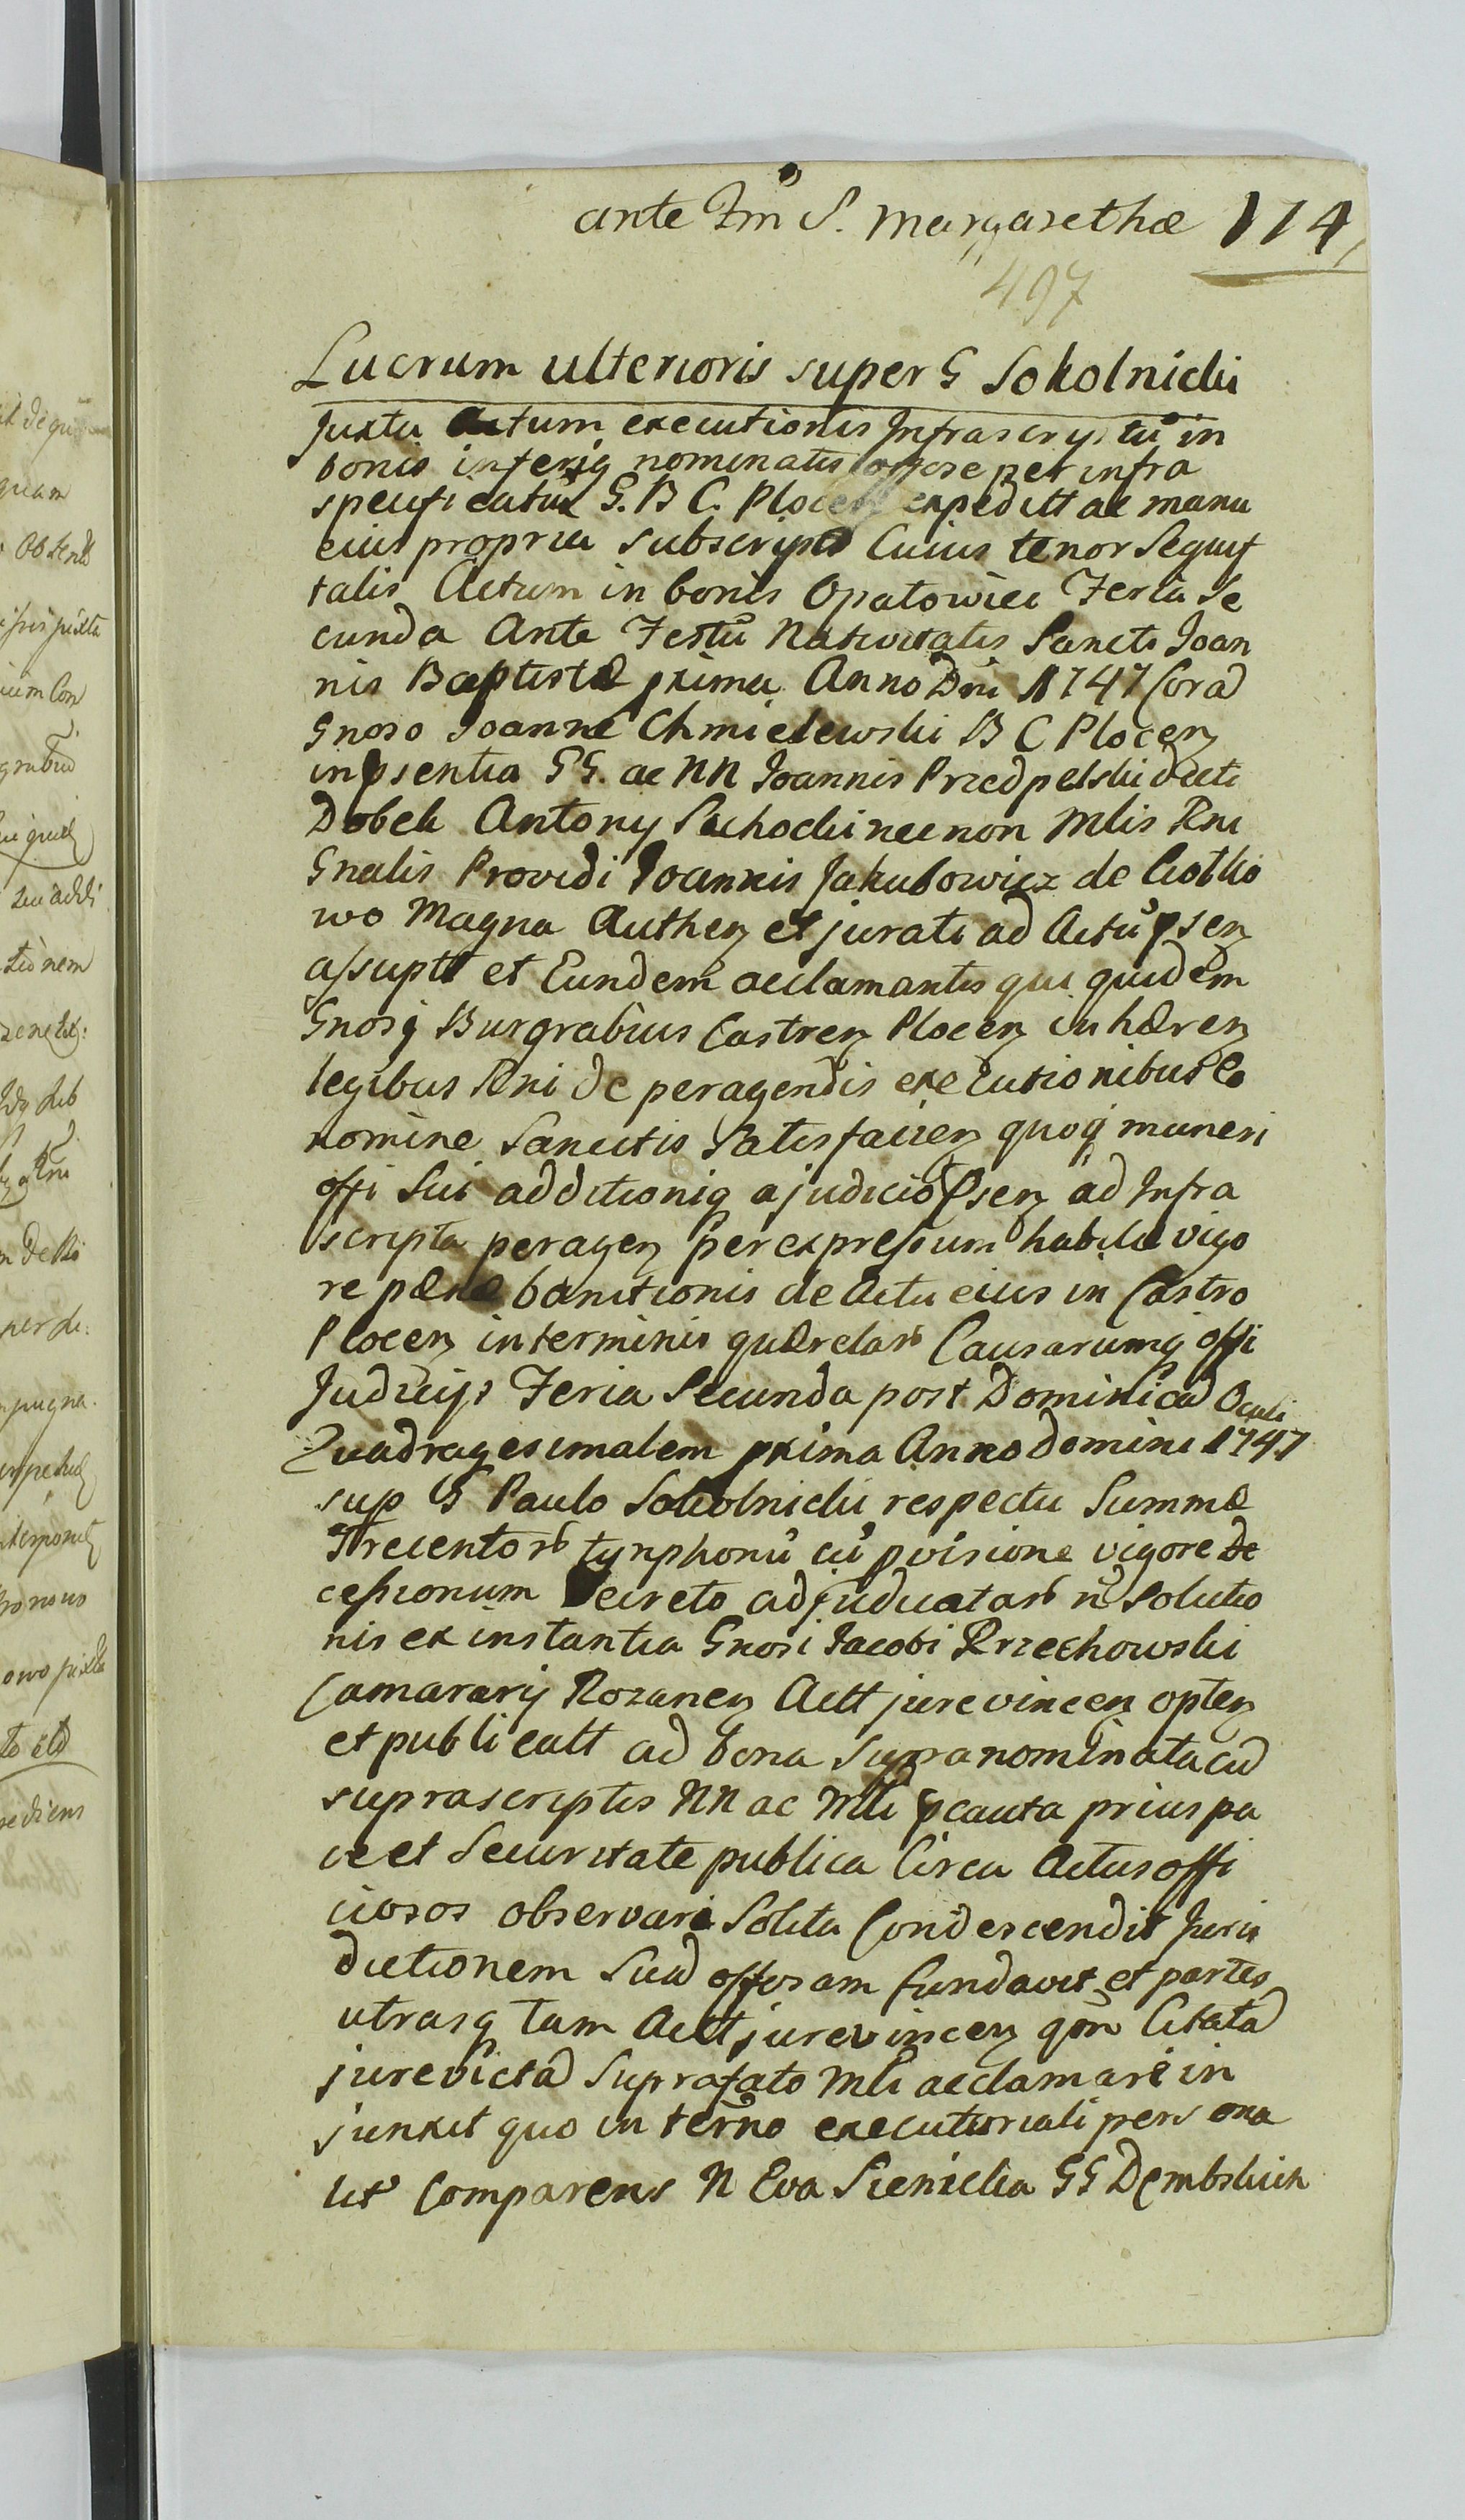 ante Fm S. Margarethæ 174
497
Lucrum ulterioris super G Sokolnicki
Juxta Actum executionis Infrascryptũ in
bonis inferiq nominatis offose per infra
specificatũ G. B C. Plocen expeditt ac manu
eius propria subscript Cuius tenor Sequit
talis Actum in bonis Opatowiec Feria Se
cunda Ante Festũ Nativitatis Sancti Joan
nis Baptistæ prima Anno Dni 1747 Corã
Gnoso Joanne Chmielewski B C Plocen
in psentia GG. ac NN Joannis Przedpelski dicti
Dobek Antony Suchocki necnon Mlis Rni
Gnalis Providi Joannis Jakubowicz de Ciotko
wo Magna Authen et jurati ad Actũ psen
assuptt et Eundem acclamantis qui quidem
Gnosq Burgrabius Castren Plocen inhæren
legibus Rni de peragendis executionibus Eo
nomine Sancitis Satisfacien quoq muneri
offi Sui additioniq a judicio Psen ad Infra
scripta peragen per expressum habitæ vigo
re pænæ banitionis de Actu eius in Castro
Plocen in terminis quærelar Causarumq offi
Judicijs Feria Secunda post Dominicã Oculi
Quadragesimalem prima Anno Domini 1747
sup G Paulo Sokolnicki respectu Summæ
Trecentor tynphonũ cũ pvisione vigore De
cessionum Decreto adjudicatar ñ Solutio
nis ex instantia Gnosi Jacobi Krzechowski
Camerarij Rozanen Actt jurevincen opten
et publicatt ad bona supranominata cũ
suprascriptis NN ac Mli pcauta prius pa
ce et Securitate publica Circa Actus offi
ciosos observari Solita Condescendit Juris
dictionem Suã offosam fundavit et partes
utrasq tam Actt jurevincen qm Citatã
jurevictã Suprafato Mli acclamare in
junxit quo in termo executoriali persona
lit Comparens N Eva Sienicka GG Dembskich